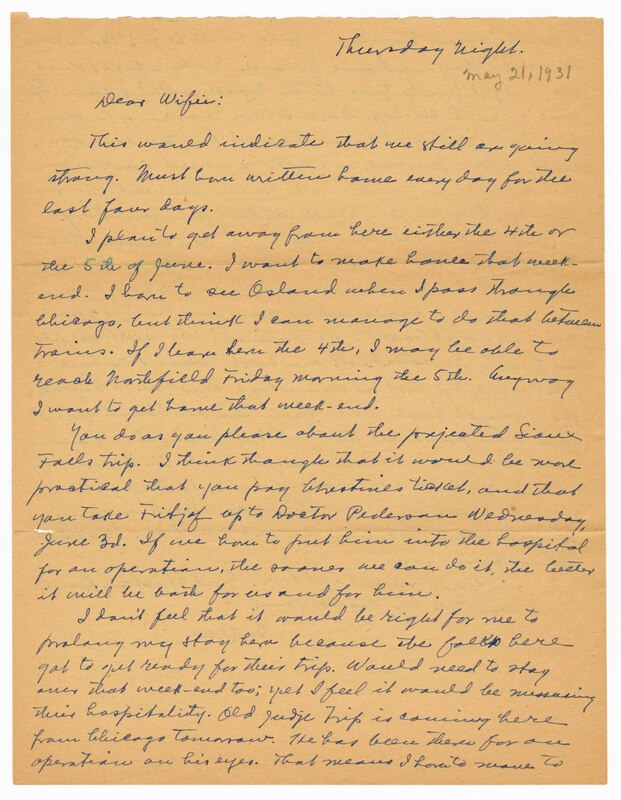 Thursday Night.
May 21, 1931
Dear Wifie:
This would indicate that we still are going
strong. Must have written home every day for the
last four days.
I plan to get away from here either the 4th or
the 5th of June. I want to make home that week-
end. I have to see Osland when I pass through
Chicago, but think I can manage to do that between
trains. If I leave here the 4th, I may be able to
reach Northfield Friday morning the 5th. Anyway
I want to get home that week-end.
You do as you please about the projected Sioux
Falls trip. I think though that it would be more
practical that you pay Christines ticket, and that
you take Fritjof up to Doctor Pederson Wednesday,
June 3d. If we have to put him into the hospital
for an operation, the sooner we can do it, the better
it will be both for us and for him.
I don't feel that it would be right for me to
prolong my stay here because the folks here
got to get ready for their trip. Would need to stay
over that week-end too; yet I feel it would be misusing
their hospitality. Old Judge Trip is coming here
from Chicago tomorrow. He has been there for an
operation on his eyes. That means I have to move to